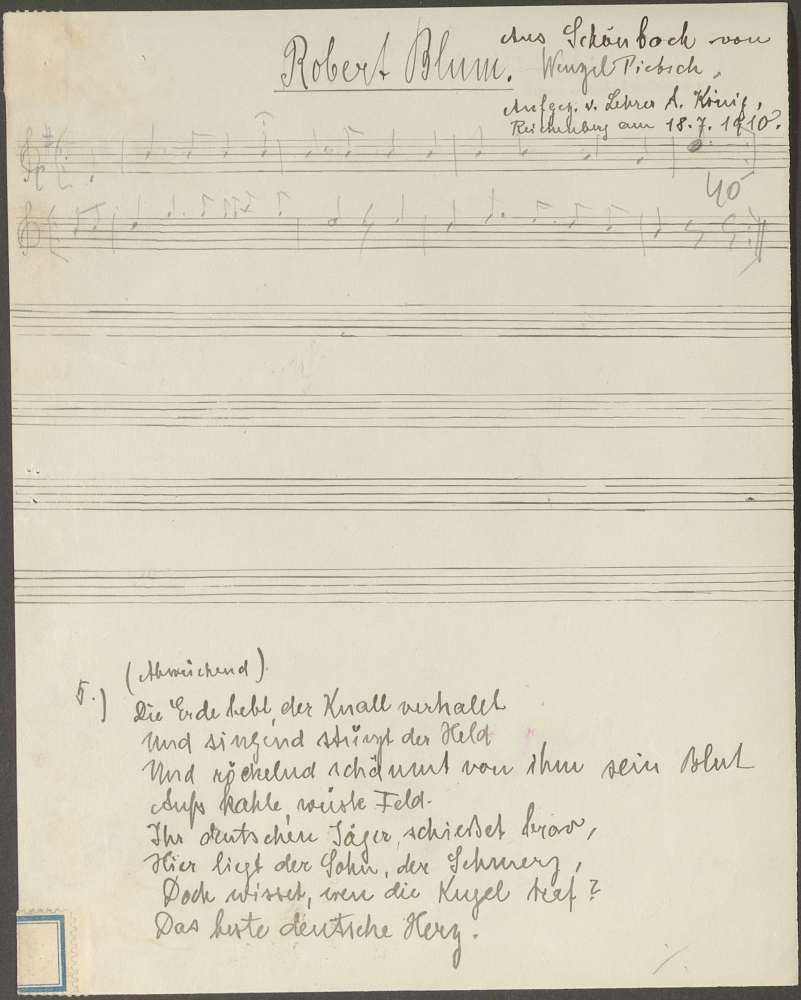 Robert Blum.
Aus Schönbach von
Wenzel Pietsch,
Aufgez. v. Lehrer A. König,
Reichenberg am 18.7.1910.
40
(Abweichend).
5.)
Die Erde bebt, der Knall verhallt
Und singend stürzt der Held
Und röchelnd schäumt von ihm sein Blut
Aufs kahle, wüste Feld.
Ihr deutschen Jäger, schießet brav,
Hier liegt der Sohn, der Schmerz,
Doch wisset, wen die Kugel traf?
Das beste deutsche Herz.